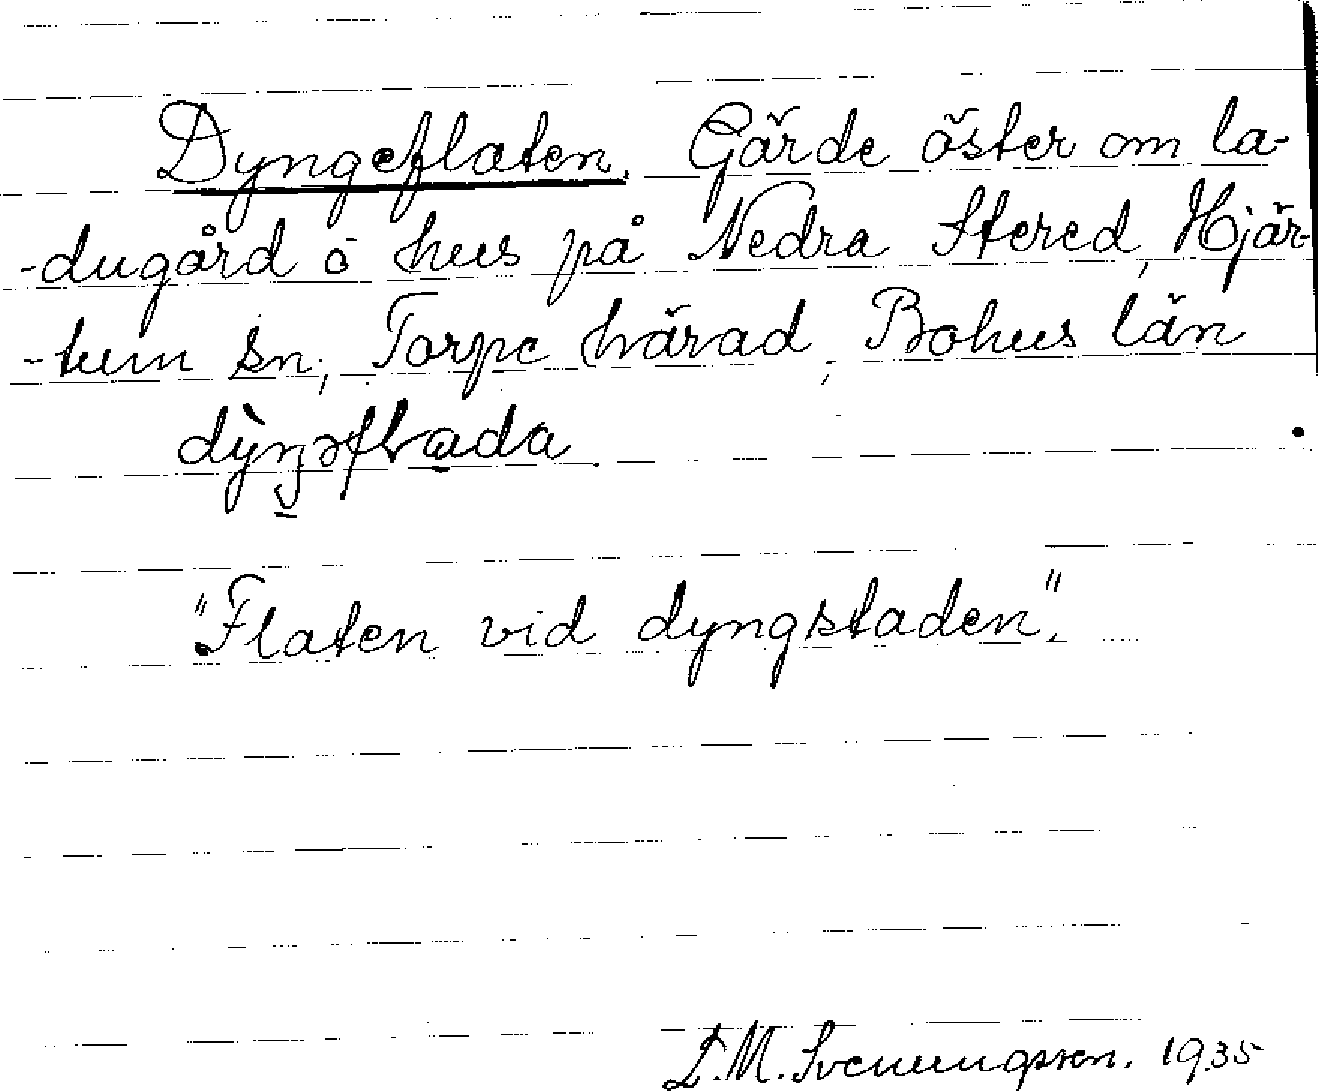 Dyngeflaten. Gärde öster om la-
-dugård o hus på Nedra Stered, Hjär-
-tum sn, Torpe härad, Bohus län
"Flaten vid dyngstaden".
D.M. Svenungsson. 1935